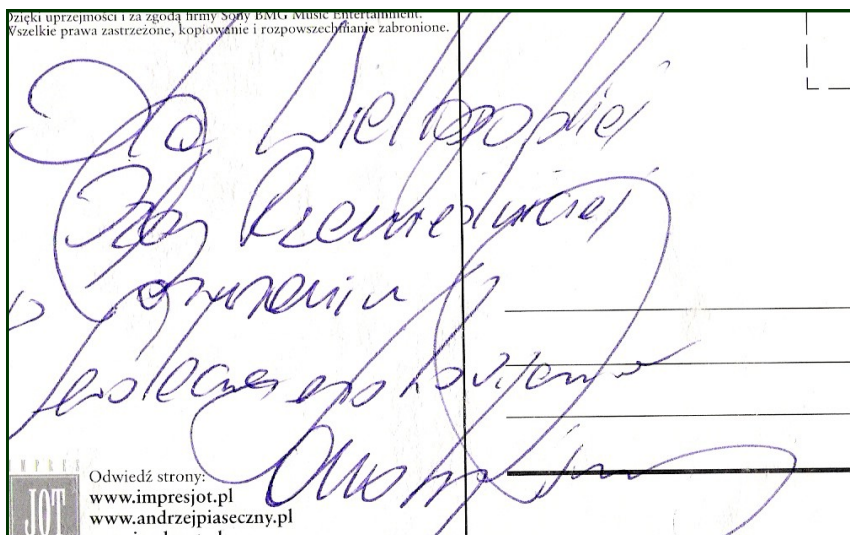 Dzięki uprzejmości i za zgodą firmy Sony BMG Music Entertainment.
Wszelkie prawa zastrzeżone, kopiowanie i rozpowszechnianie zabronione.
Dla Wielkopolskiej
Izby Rzemieślniczej
w Poznaniu
serdeczne pozdrowienia
IMPRES
JOT
Odwiedź strony:
www.impresjot.pl
www.andrzejpiaseczny.pl